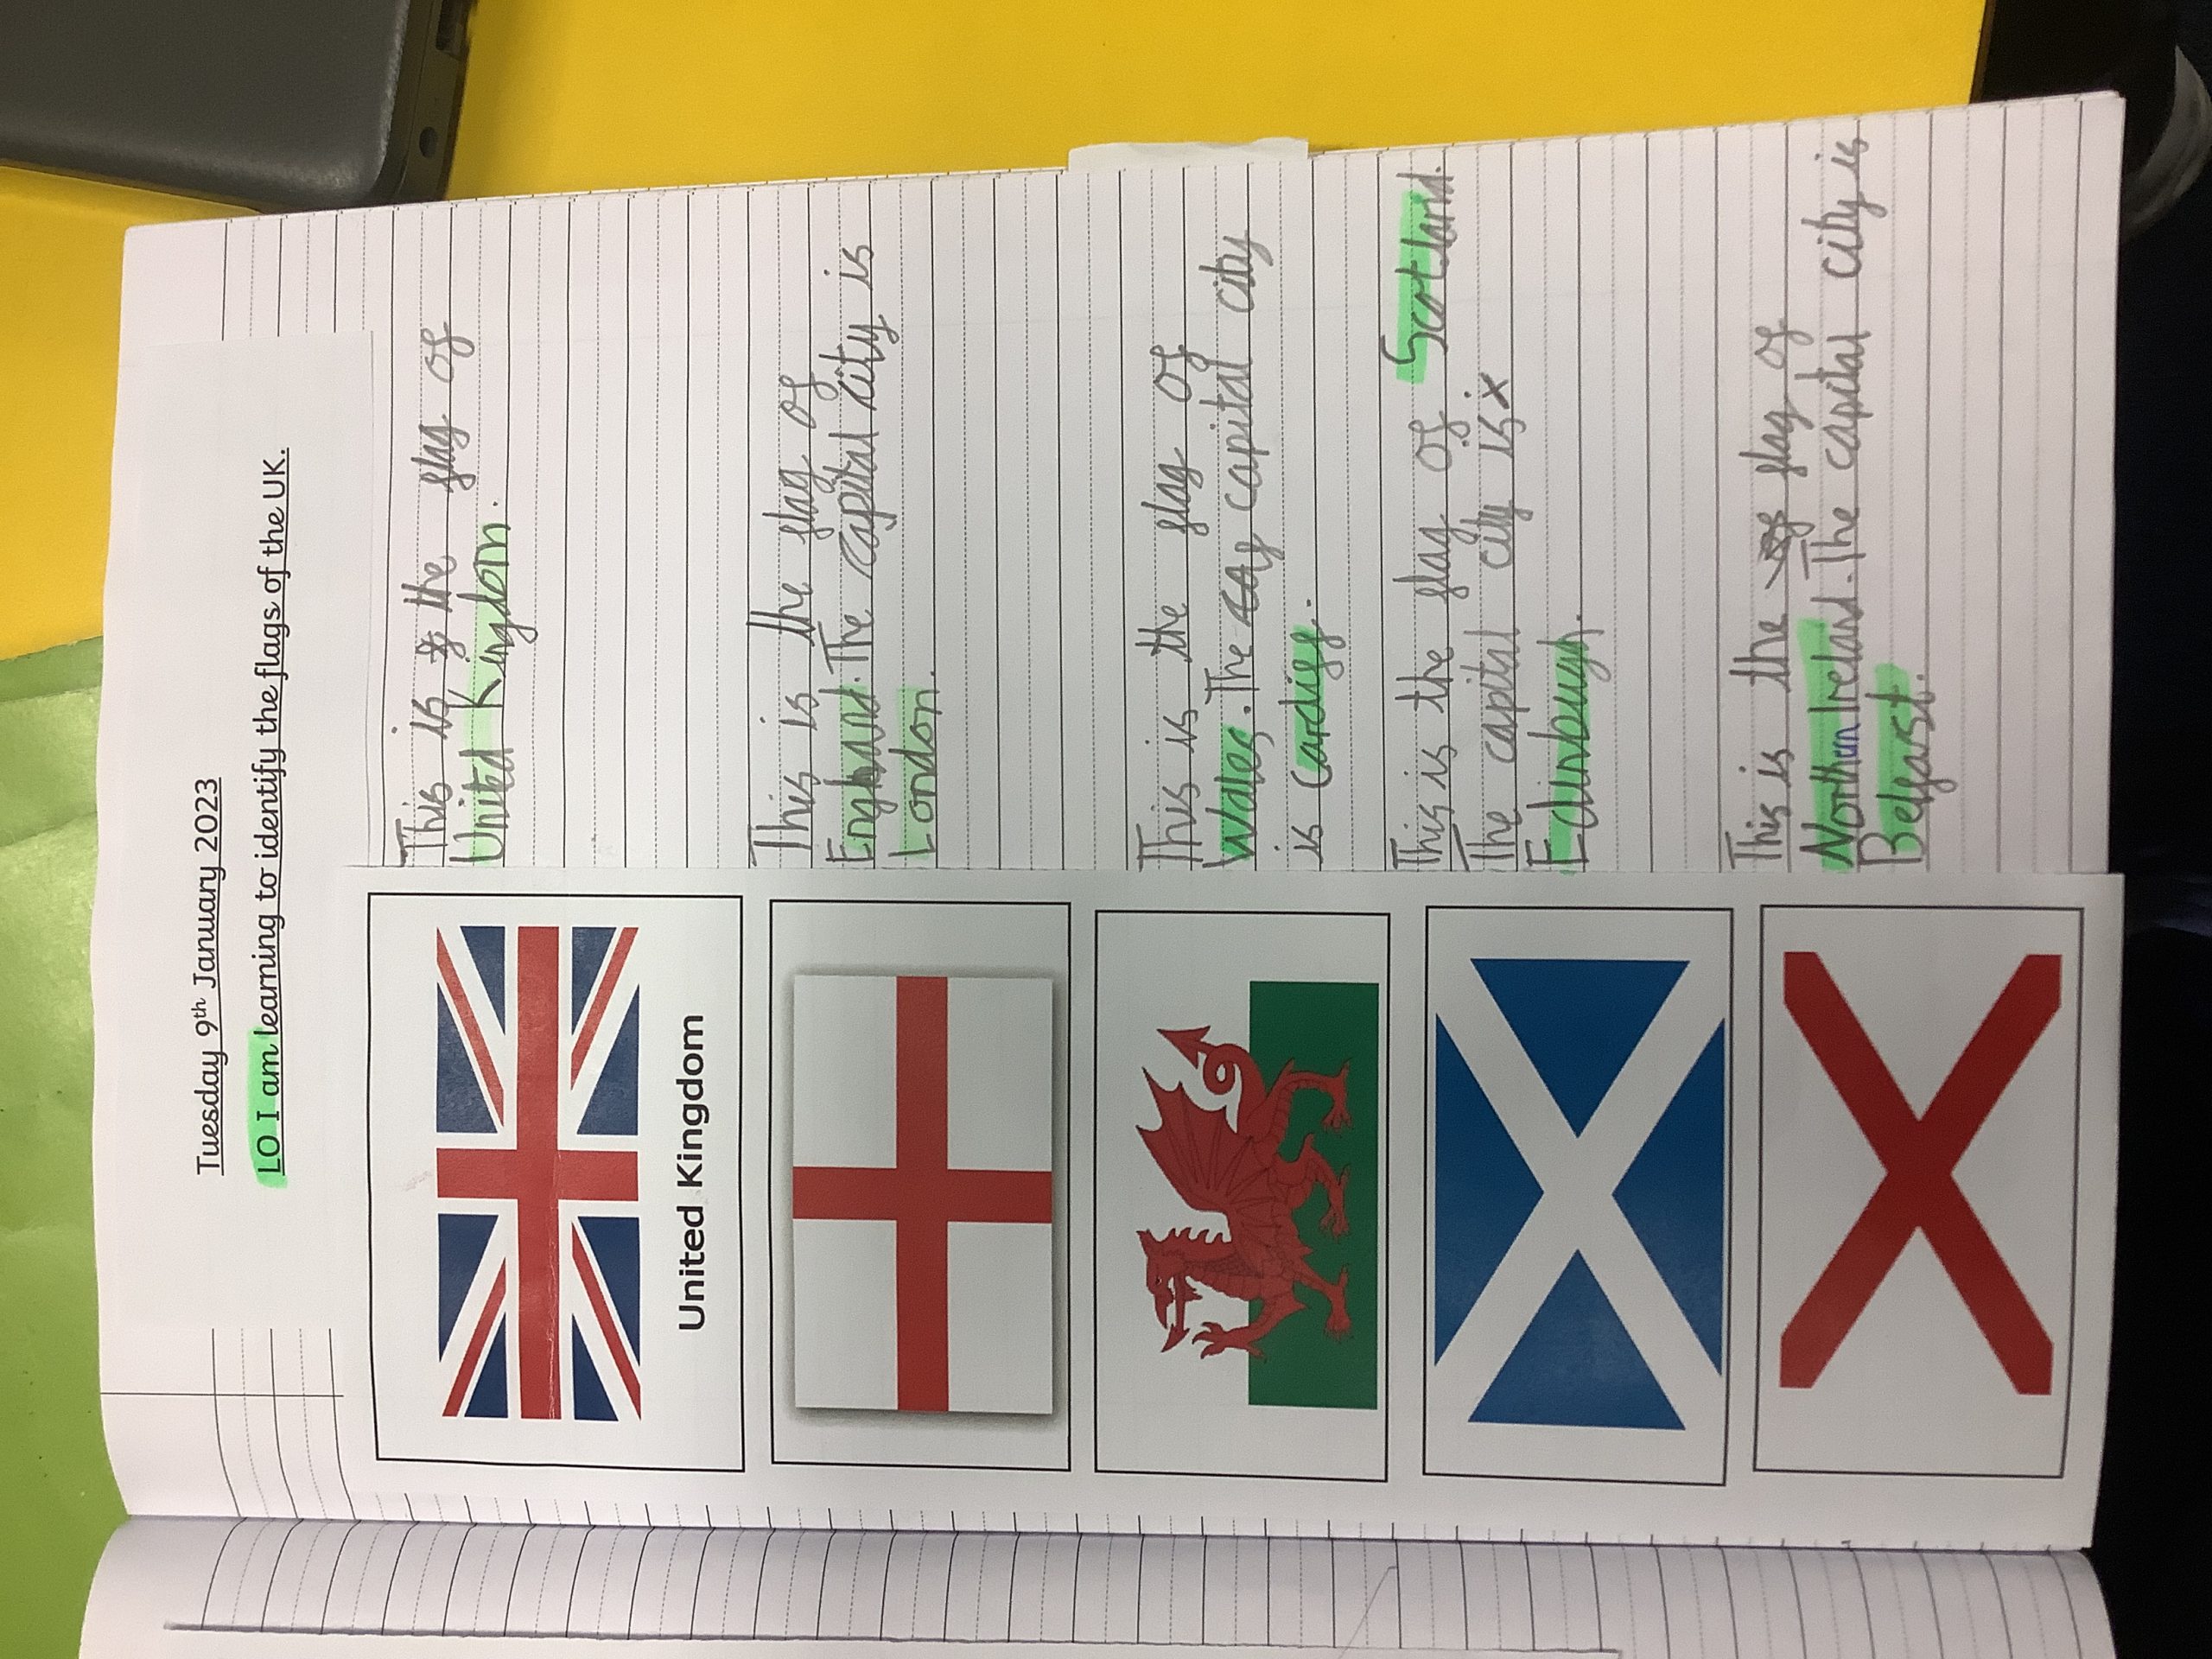 Tuesday 9th January 2023
LO I am learning to identify the flags of the UK.
United Kingdom
This is the flag of
United Kingdom.
This is the flag of
England. The capital city is
London.
This is the flag of
Wales. The capital city
is Cardiff.
This is the flag of Scotland.
The capital city is
Edinburgh.
This is the flag of
Northun Ireland. The capital city is
Belfast.